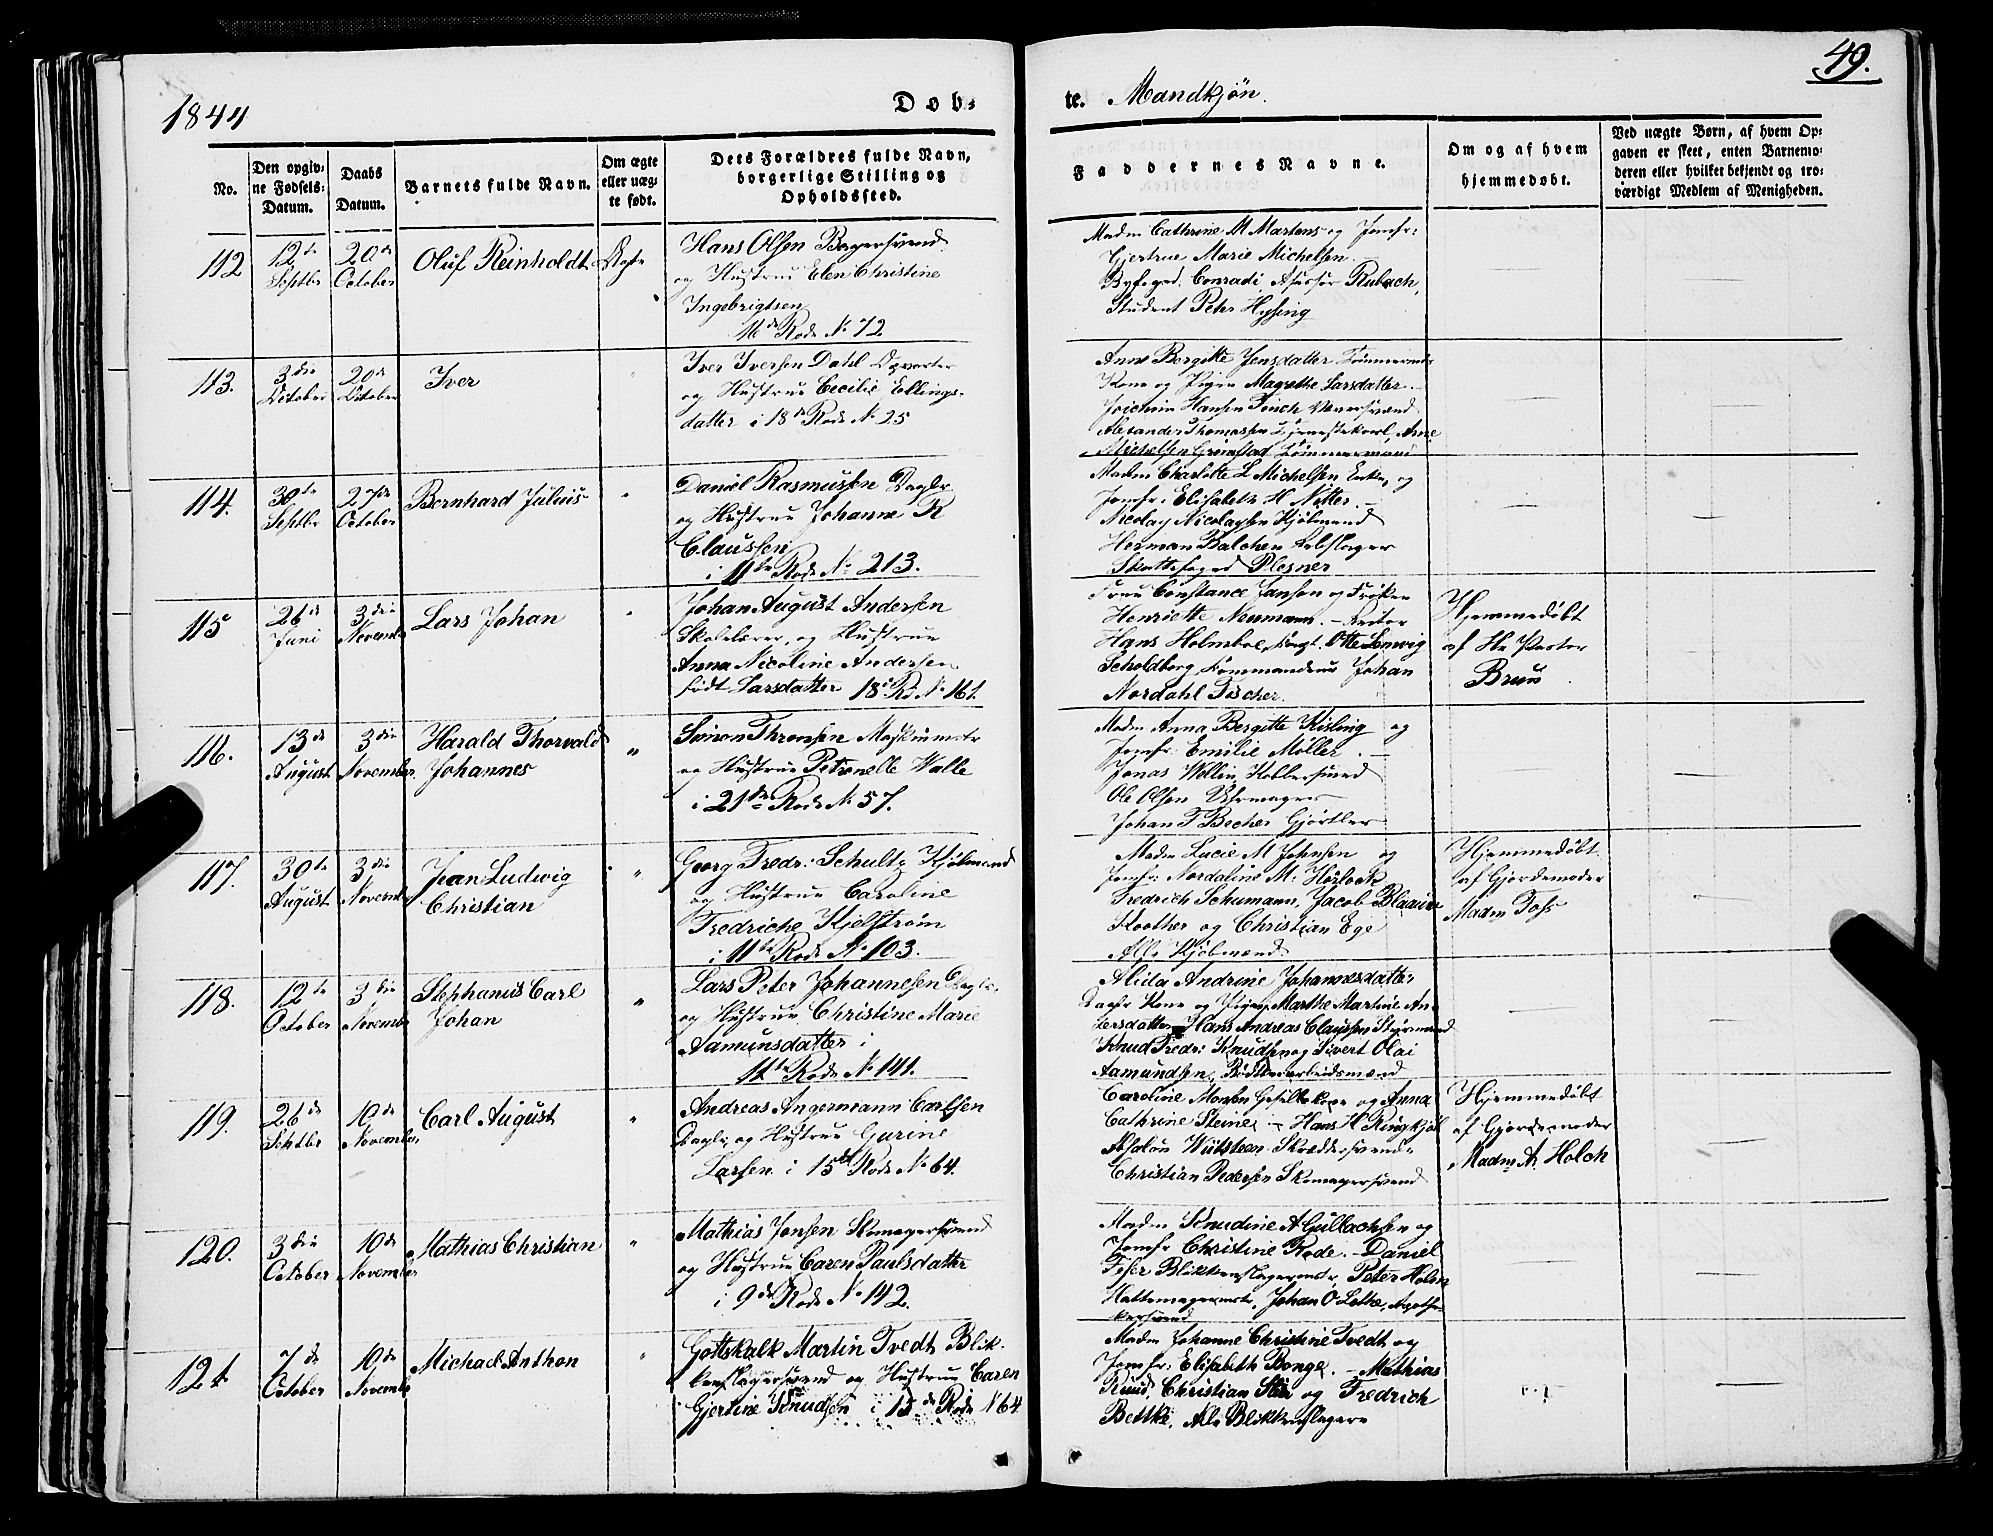 1844
Døb-
te. Mandkjøn.
49.
No.
Den opgiv-
ne Fødsels-
Datum.
Daabs
Datum.
Barnets fulde Navn.
Om ægte
eller uæg-
te født.
Dets Forældres fulde Navn,
borgerlige Stilling og
Opholdssted.
Faddernes Navne.
Om og af hvem
hjemmedøbt.
Ved uægte Børn, af hvem Op-
gaven er skeet, enten Barnemo-
deren eller hvilket bekjendt og tro-
værdigt Medlem af Menigheden.
112
12te
Septbr
20de
October
Oluf Reinholdt
Ægte
Hans Olsen Bagersvend
og Hustrue Elen Christine
Ingebrigtsen
11te Rode No 72
Madm Cathrine M Martens og Jomfr:
Gjertrue Marie Michelsen.
Byfoged Conradi, Assessor Rubach,
Student Peter Hysing
113.
3die
October
20de
October
Iver
Iver Iversen Dahl Opvarter
og Hustrue Cecilie Ellings-
datter i 18de Rode No 25
Anne Bergitte Jensdatter Tømmermds
Kone og Pigen Magrethe Larsdatter.
Joichim Hansen Finch Væversvend
Alexander Thomassen Tjenestekarl, Arne
Michelsen Grimstad Tømmermand
114.
30te
Septbr
27de
October
Bernhard Julius
"
Daniel Rasmussen Daglr
og Hustrue Johanne R
Claussen
i 11te Rode No 213.
Madm Charlotte L Michelsen Enke, og
Jomfr: Elisabeth H Netter.
Nicolay Nicolaysen Kjøbmand
Herman Balchen Rebslager
Skattefoged Plesner
115
26de
Juni
3die
Novembr
Lars Johan
"
Johan August Andersen
Skolelærer, og Hustrue
Anna Nicoline Andersen
født Larsdatter 18de Ro No 161.
Frue Constance Janson og Frøken
Henriette Neumann. - Rector
Hans Holmboe, Otto Lemvig
Scholdborg, Commandeur Johan
Nordahl Fischer.
Hjemmedøbt
af Hr Pastor
Bruun
116.
13de
August
3die
November
Harald Thorvald
Johannes
"
Simon Thronsen
og Hustrue Petronelle Walle
i 21de Rode No 57.
Madm Anna Bergitte Kisling og
Jomfr: Emilie Møller. -
Jonas Wellin, Kobbersmed
Ole Olsen Uhrmager
Johan F Becher Gjørtler
117.
30te
August
3die
Novembr
Jean Ludwig
Christian
"
Georg Fredr: Schultz Kjøbmand
og Hustrue Caroline
Fredriche Kjelstrøm
i 11te Rode No 103.
Madm Lucie M Johnsen og
Jomfr Nordaline M.
Fredrich Schumann, Jacob Blaauw
og Christian Ege
Alle Kjøbmænd
Hjemmedøbt
af Gjordemoder
Madm Foss
118.
12te
October
3die
Novembr
Stephanus Carl
Johan
"
Lars Peter Johannesen Daglr.
og Hustrue Christine Marie
Aamunsdatter i
11te Rode No 141.
Alida Andrine Johannesdatter
Daglr Kone og Pigen Marthe Martine An-
dersdatter, Hans Andreas Claussen Styrmand
Knud Fredr: Knudsen og Sivert Olai
Aamundsen, Bødtkerarbeidsmænd
119.
26de
Septbr
10de
November
Carl August
"
Andreas Angermann Carlsen
Daglr og Hustrue Gurine
Larsen i 15de Rode No 64.
Caroline Monsen og Anna
Cathrine Steine. - Hans H Ringkjøb
Absalon Skræddersvend.
Christian Pedersen Skomagersvend
Hjemmedøbt
af Gjordemoder
Madm A. Holch
120.
3die
October
10de
November
Mathias Christian
"
Mathias Jensen Skomagersvend
og Hustrue Caren Paulsdatter
i 9de Rode No 142.
Madm Knudine A Gullachsen og
Jomfr Christine Rode. - Daniel
Blikkenslagermstr, Peter Holm
Hattemagermstr, Johan O Lothe, Apothe-
kersvend
121.
7de
October
10de
Novembr
Michael Anthon
"
Gottskalk Martin Tvedt Blik-
kenslagersvend og Hustrue Caren
Gjertine Knudsen i 15de Rode N 64
Madm Johanne Christine Tvedt og
Jomfr: Elisabeth Bonge. - Mathias
Ruud, Christian og Fredrich
Bettke, Alle Blikkenslagere